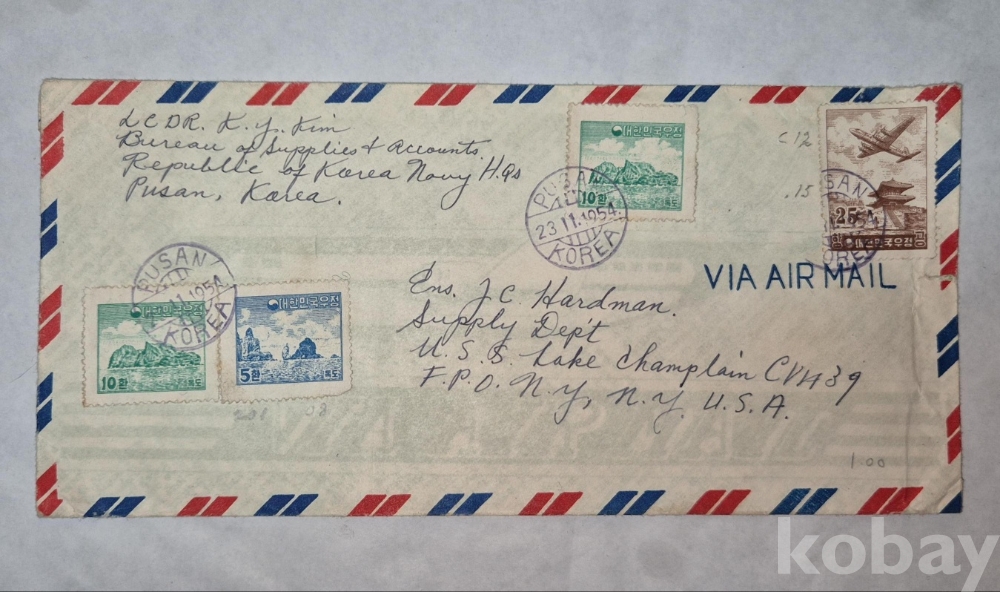 LCDR. K. Y. Kim
Bureau of Supplies & Accounts
Republic of Korea Navy Hqs
Pusan, Korea.
대한민국우정
10환
독도
PUSAN
23.11.1954
KOREA
C 12
.15
PUSAN
KOREA
25
대한민국우정
VIA AIR MAIL
Ens. J.C. Hardman
Supply Dep't
U.S.S. Lake Champlain CVA39
F.P.O. N.Y., N.Y. U.S.A.
PUSAN
11.1954
KOREA
대한민국우정
10환
독도
대한민국우정
5환
독도
1.00
kobay